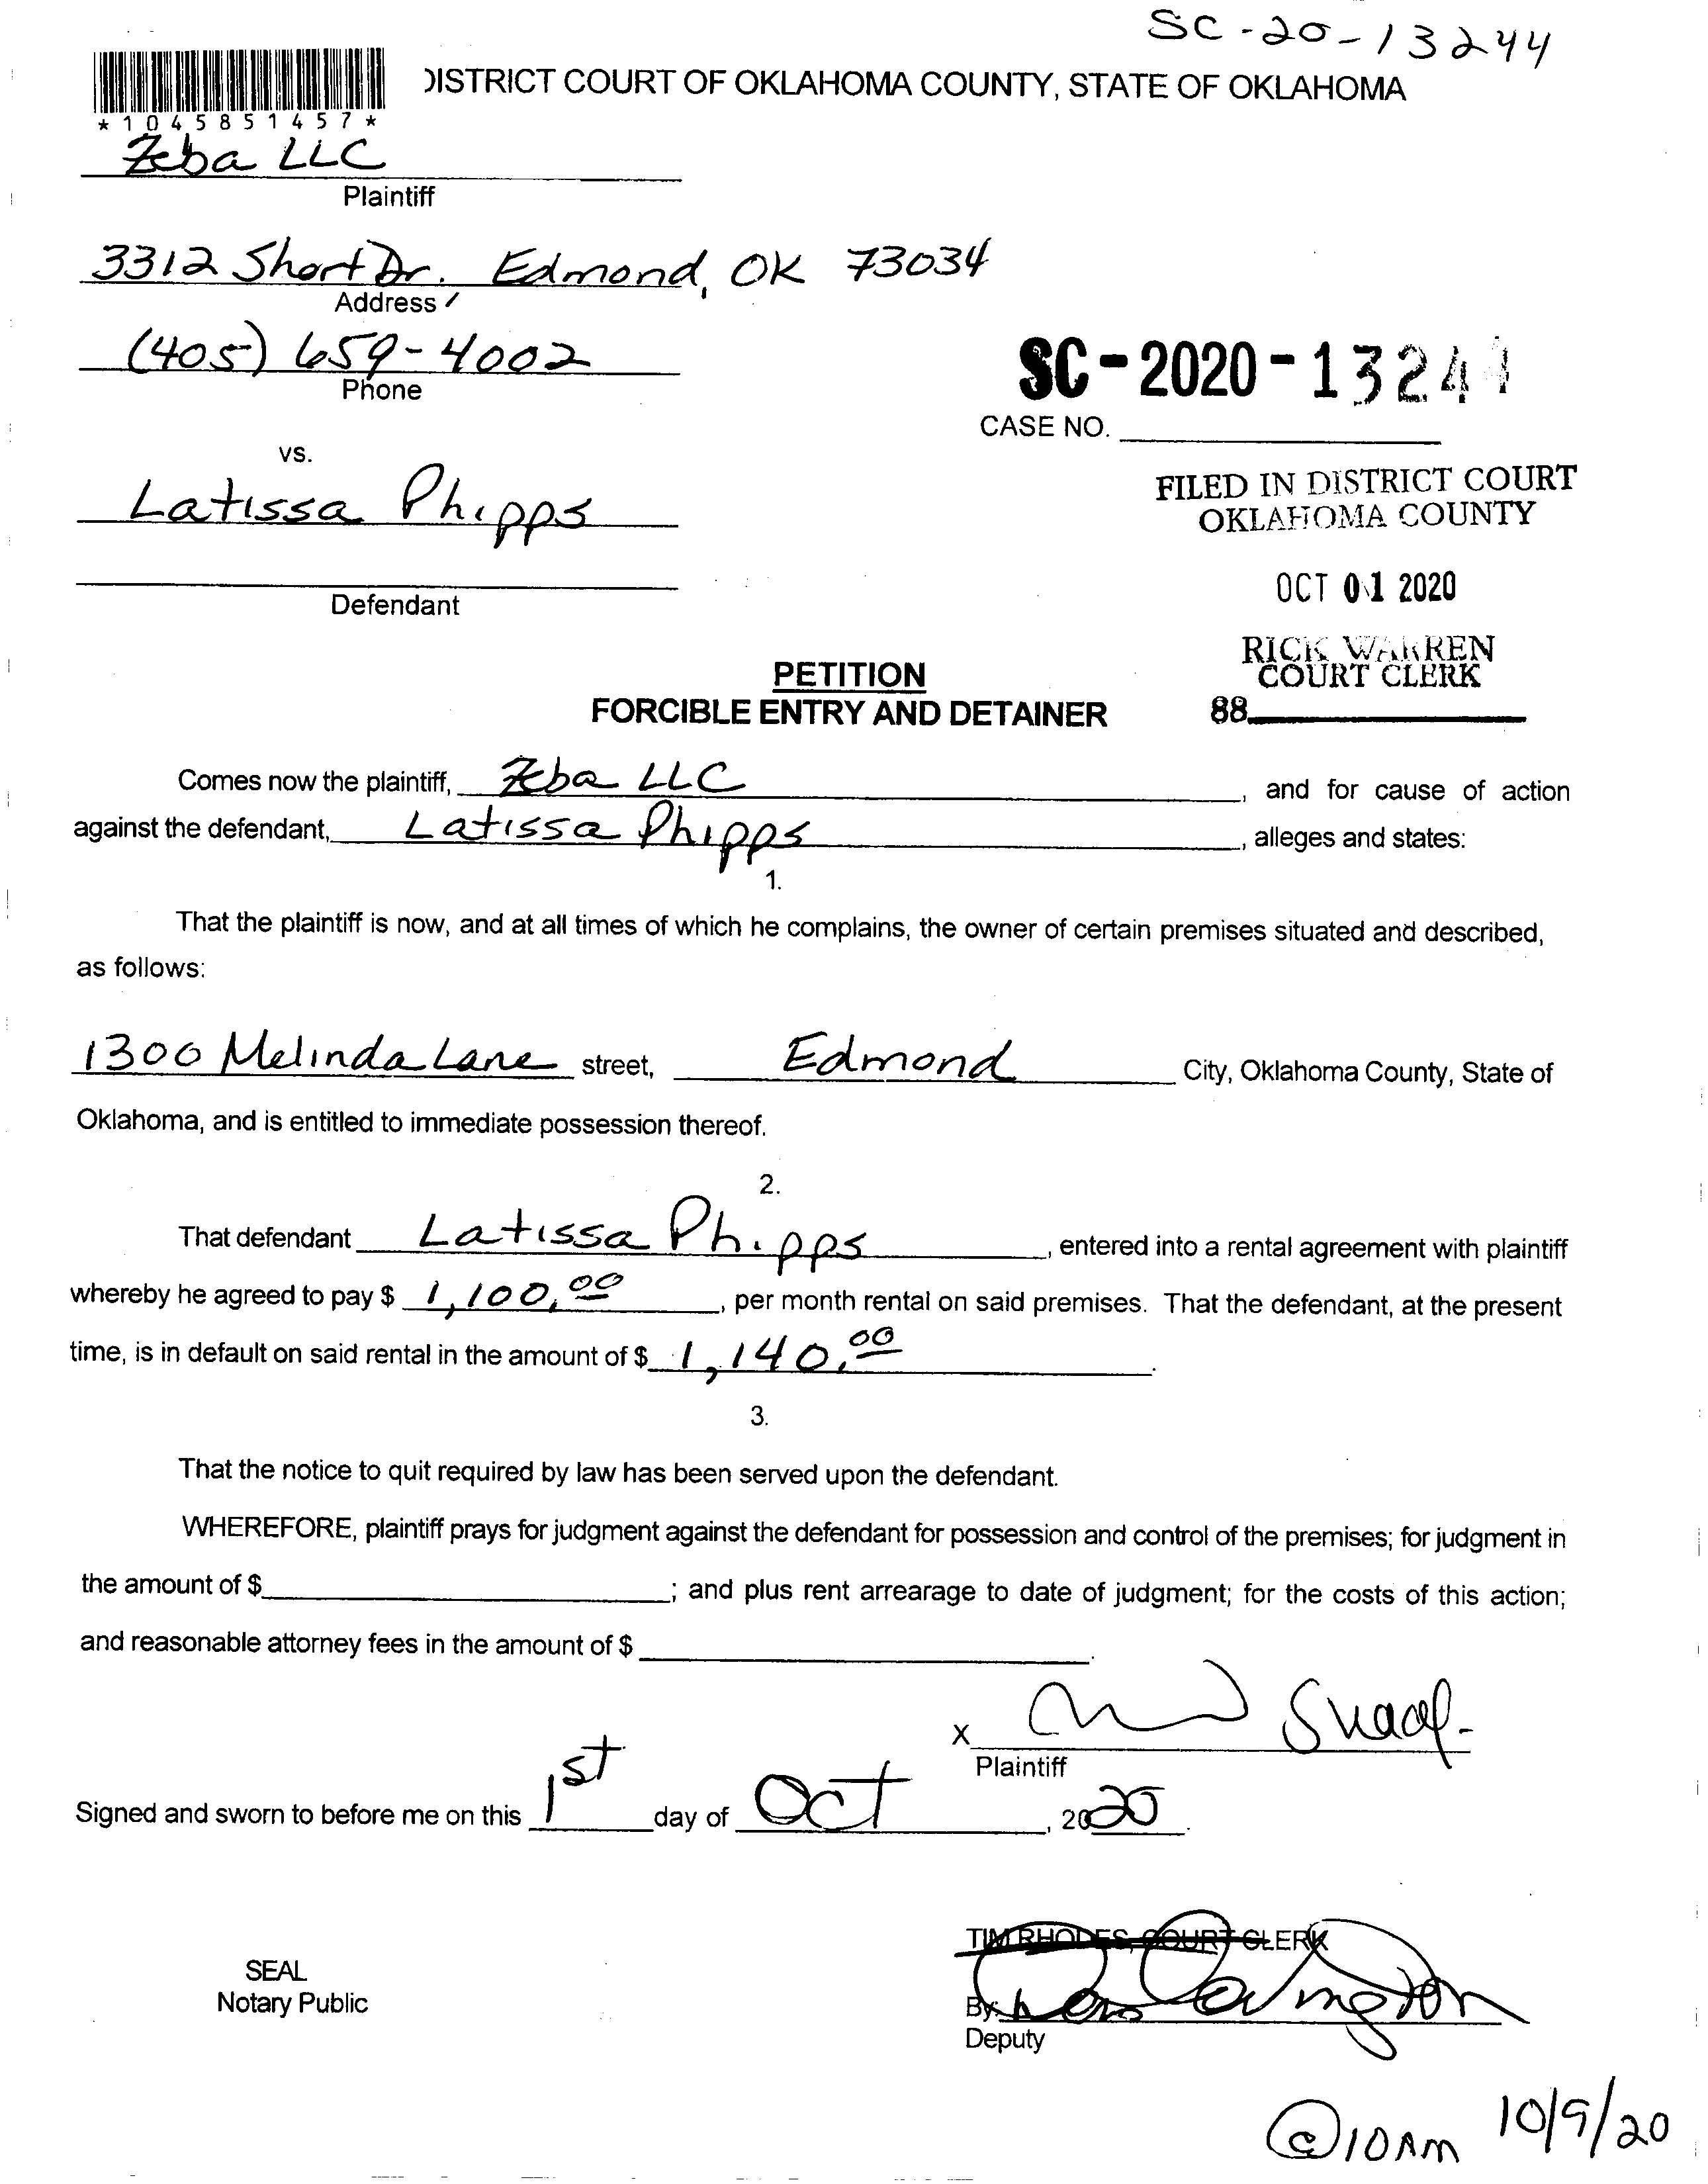 SC-20-13244
DISTRICT COURT OF OKLAHOMA COUNTY, STATE OF OKLAHOMA
*1045851457*
Zeba LLC
Plaintiff
3312 Short Dr. Edmond, OK 73034
Address
(405) 659-4002
Phone
SC-2020-13244
CASE NO.
vs.
Latissa Phipps
FILED IN DISTRICT COURT
OKLAHOMA COUNTY
Defendant
OCT 01 2020
RICK WARREN
COURT CLERK
88
PETITION
FORCIBLE ENTRY AND DETAINER
Comes now the plaintiff, Zeba LLC, and for cause of action
against the defendant, Latissa Phipps, alleges and states:
1.
That the plaintiff is now, and at all times of which he complains, the owner of certain premises situated and described,
as follows:
1300 Melinda Lane street, Edmond City, Oklahoma County, State of
Oklahoma, and is entitled to immediate possession thereof.
2.
That defendant Latissa Phipps, entered into a rental agreement with plaintiff
whereby he agreed to pay $ 1,100.00, per month rental on said premises. That the defendant, at the present
time, is in default on said rental in the amount of $ 1,140.00.
3.
That the notice to quit required by law has been served upon the defendant.
WHEREFORE, plaintiff prays for judgment against the defendant for possession and control of the premises; for judgment in
the amount of $; and plus rent arrearage to date of judgment; for the costs of this action;
and reasonable attorney fees in the amount of $.
X
Plaintiff
Signed and sworn to before me on this 1st day of Oct, 2020.
TIM RHODES, COURT CLERK
SEAL
Notary Public
By:
Deputy
@10AM 10/9/20